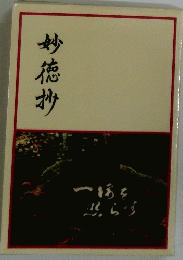 妙徳抄
一隅を
照らす